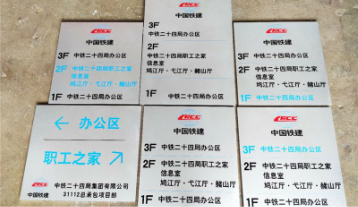 CRCC
中国铁建
3F 中铁二十四局办公区
2F 中铁二十四局职工之家
信息室
鸠江厅·弋江厅·赭山厅
1F 中铁二十四局办公区
CRCC
中国铁建
3F
中铁二十四局办公区
2F
中铁二十四局职工之家
信息室
鸠江厅·弋江厅·赭山厅
1F 中铁二十四局办公区
CRCC
中国铁建
3F 中铁二十四局办公区
2F 中铁二十四局职工之家
信息室
鸠江厅·弋江厅·赭山厅
1F 中铁二十四局办公区
← 办公区
职工之家 ↗
CRCC
中国铁建
中铁二十四局集团有限公司
31112总承包项目部
CRCC
中国铁建
3F 中铁二十四局办公区
2F 中铁二十四局职工之家
信息室
鸠江厅·弋江厅·赭山厅
1F 中铁二十四局办公区
CRCC
中国铁建
3F 中铁二十四局办公区
2F 中铁二十四局职工之家
信息室
鸠江厅·弋江厅·赭山厅
1F 中铁二十四局办公区